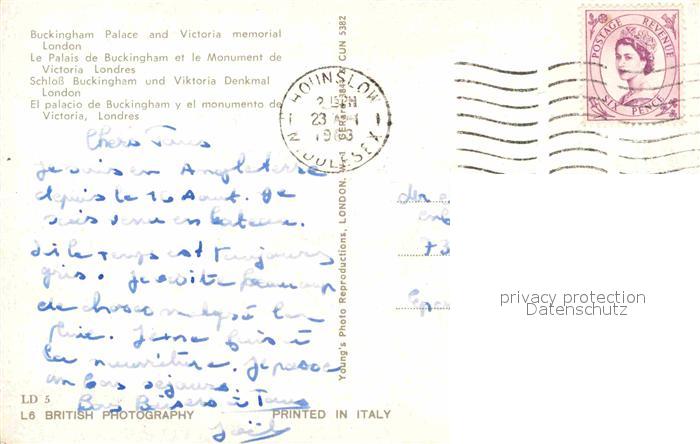 Buckingham Palace and Victoria memorial
London
Le Palais de Buckingham et le Monument de
Victoria Londres
Schloß Buckingham und Viktoria Denkmal
London
El palacio de Buckingham y el monumento de
Victoria, Londres
Chers Tous
Je suis en Angleterre
depuis le 16 Aout. Je
suis venu en bateau.
Ici le temps est toujours
gris. Je visite beaucoup
de choses malgré la
pluie. J'
la nourriture. Je passe
un bon séjour.
Bons Baisers à Tous
Joël
LD 5
L6 BRITISH PHOTOGRAPHY
PRINTED IN ITALY
Young's Photo Reproductions, LONDON, W. 1
CUN 5382
HOUNSLOW
23
MIDDLESEX
POSTAGE REVENUE
SIX PENCE
73
privacy protection
Datenschutz